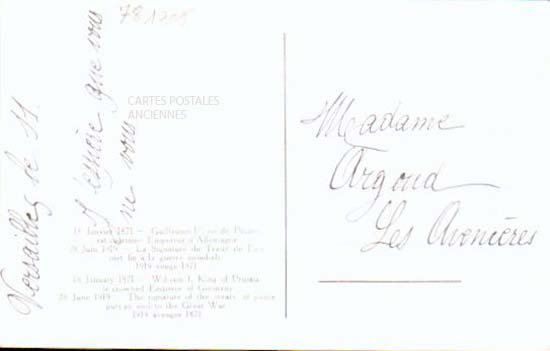 781205
CARTES POSTALES
ANCIENNES
Versailles le 11.
J'espère que vous
ne vous
18 Janvier 1871 — Guillaume I, roi de Prusse
est couronné Empereur d'Allemagne
28 Juin 1919 — La Signature du Traité de Paix
met fin à la guerre mondiale
1919 venge 1871
18 January 1871 — William I, King of Prussia
is crowned Emperor of Germany
28 June 1919 The signature of the treaty of peace
puts an end to the Great War
1919 avenges 1871
Madame
Argoud
Les Avenières